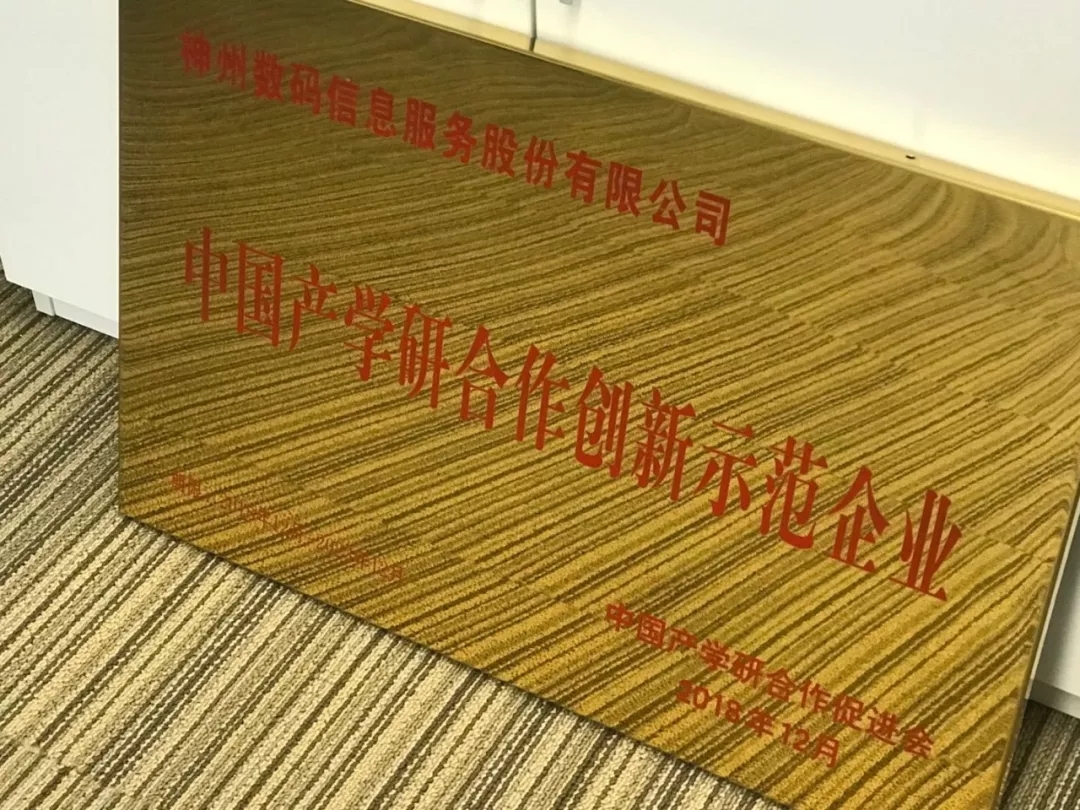 神州数码信息服务股份有限公司
中国产学研合作创新示范企业
中国产学研合作促进会
2018年12月